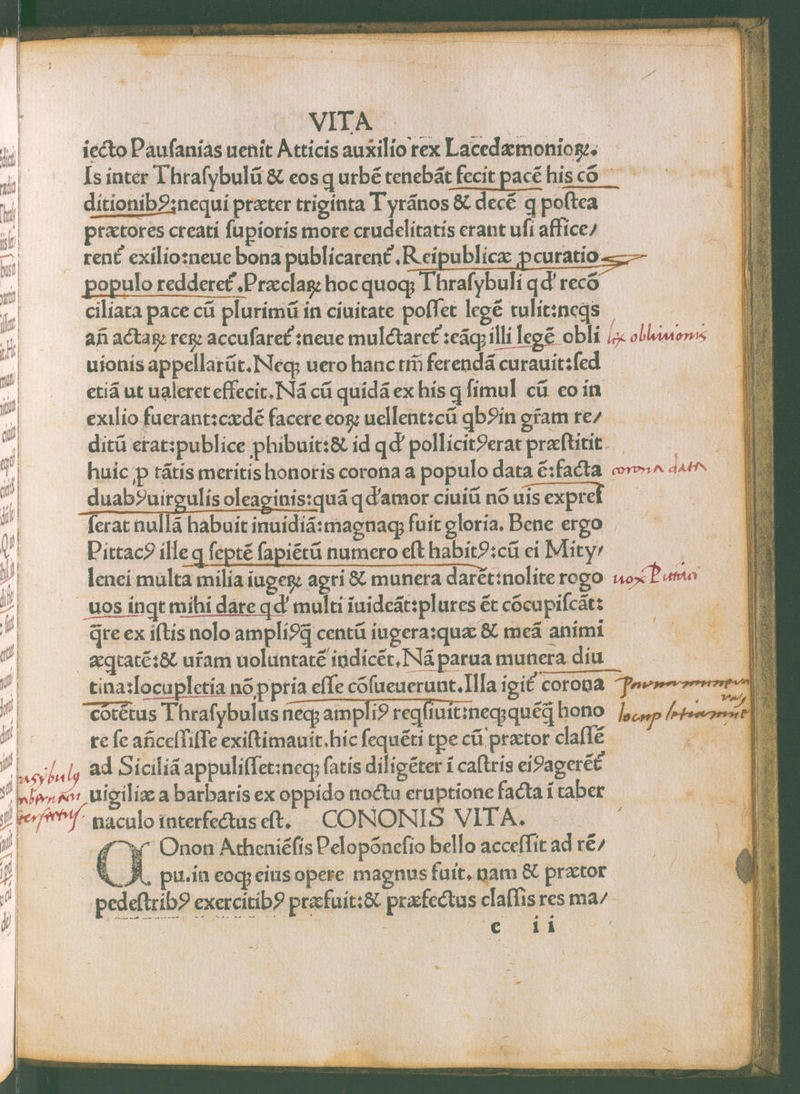 VITA
iecto Pauſanias uenit Atticis auxilio rex Lacedæmonioꝝ.
Is inter Thraſybulū & eos q urbē tenebāt fecit pacē his cō
ditionibꝰ;nequi præter triginta Tyrános & decē q poſtea
prætores creati ſupioris more crudelitatis erant uſi affice/
rent᷑ exilio:neue bona publicarent᷑.Reipublicæ ꝓcuratio
populo redderet᷑.Præclaꝝ hoc quoqꝫ Thraſybuli qd' recō
ciliata pace cū plurimū in ciuitate poſſet legē tulit:neqs
añ actaꝝ reꝝ accuſaret᷑:neue mulctaret᷑:eāqꝫ illi legē obli
lex obliuionis
uionis appellarūt.Neqꝫ uero hanc tm̄ ferendā curauit:ſed
etiā ut ualeret effecit.Nā cū quidā ex his q ſimul cū eo in
exilio fuerant:cædē facere eoꝝ uellent:cū qbꝰin gr̄am re/
ditū erat:publice ꝓhibuit:& id qd' pollicitꝰerat præſtitit
huic ꝓ tātis meritis honoris corona a populo data ē:facta
corona data
duabꝰuirgulis oleaginis:quā q d'amor ciuiū nō uis expreſ
ſerat nullā habuit inuidiā:magnaqꝫ fuit gloria. Bene ergo
Pittacꝰ ille q ſeptē ſapiētū numero eſt habitꝰ:cū ei Mity/
lenei multa milia iugeꝝ agri & munera darēt:nolite rogo
uos inqt mihi dare qd' multi iuideāt:plures ēt cōcupiſcāt:
q̄re ex iſtis nolo ampliꝰq̄ centū iugera:quæ & meā animi
æqtatē:& ur̄am uoluntatē indicēt.Nā parua munera diu
tina:locupletia nō ꝓpria eſſe cōſueuerunt.Illa igit᷑ corona
cōtētus Thraſybulus neqꝫ ampliꝰ reqſiuit:neqꝫ quēq̄ hono
re ſe añceſſiſſe exiſtimauit.hic ſequēti tpe cū prætor claſſē
ad Siciliā appuliſſet:neqꝫ ſatis diligēter ī caſtris eiꝰagerēt᷑
uigiliæ a barbaris ex oppido noctu eruptione facta ī taber
naculo interfectus eſt. CONONIS VITA.
COnon Atheniēſis Pelopōneſio bello acceſſit ad rē/
pu.in eoqꝫ eius opere magnus fuit. nam & prætor
pedeſtribꝰ exercitibꝰ præfuit:& præfectus claſſis res ma/
c ii